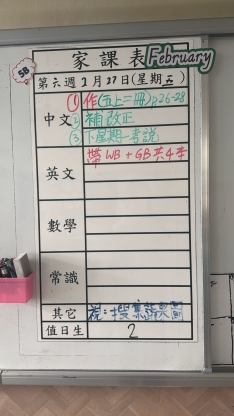 5B
家課表
February
第六週2月27日(星期五)
中文
①作(五上二冊)p.26-28
②補改正
③下星期一考說
英文
帶WB + GB 共4本
數學
常識
其它
視:搜集
值日生
2